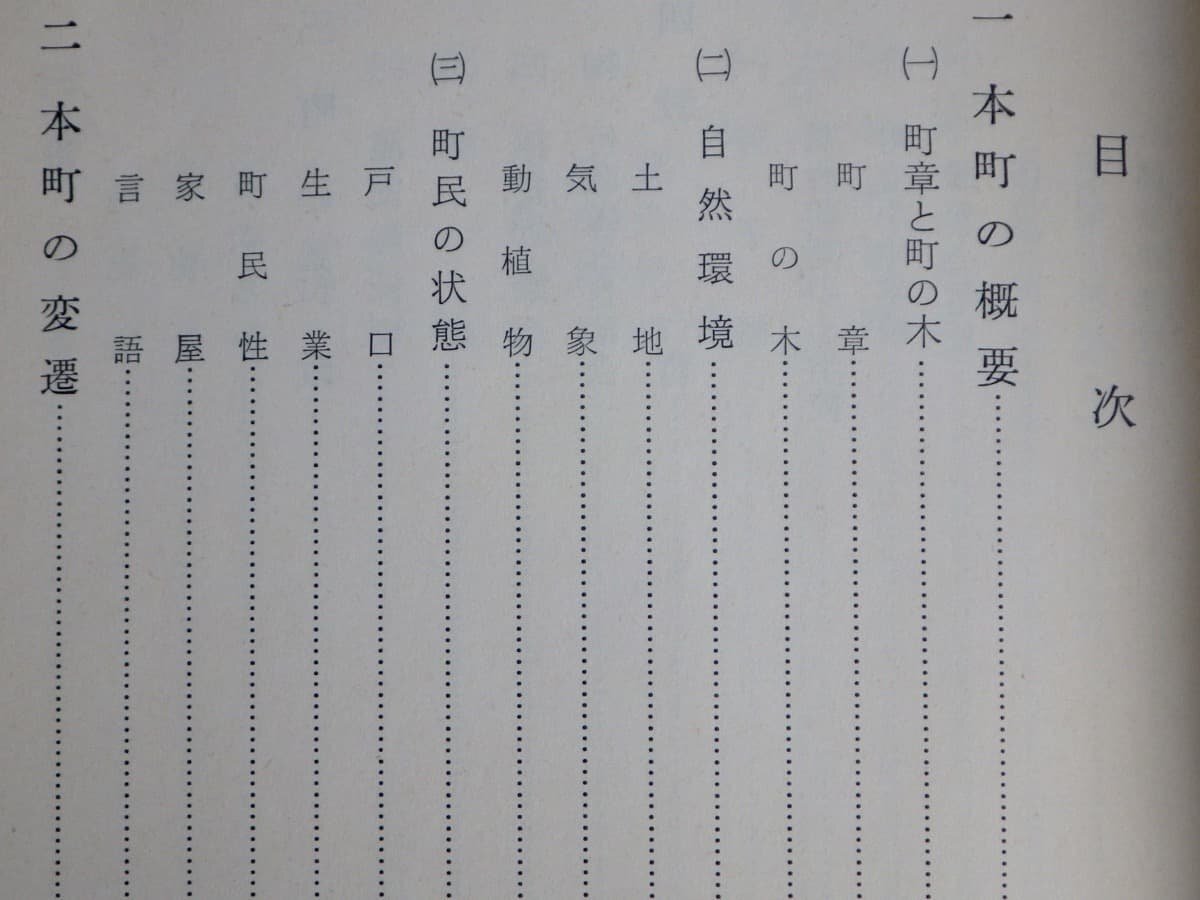 目次
一 本町の概要
㈠ 町章と町の木
町章
町の木
㈡ 自然環境
土地
気象
動植物
㈢ 町民の状態
戸口
生業
町民性
家屋
言語
二 本町の変遷